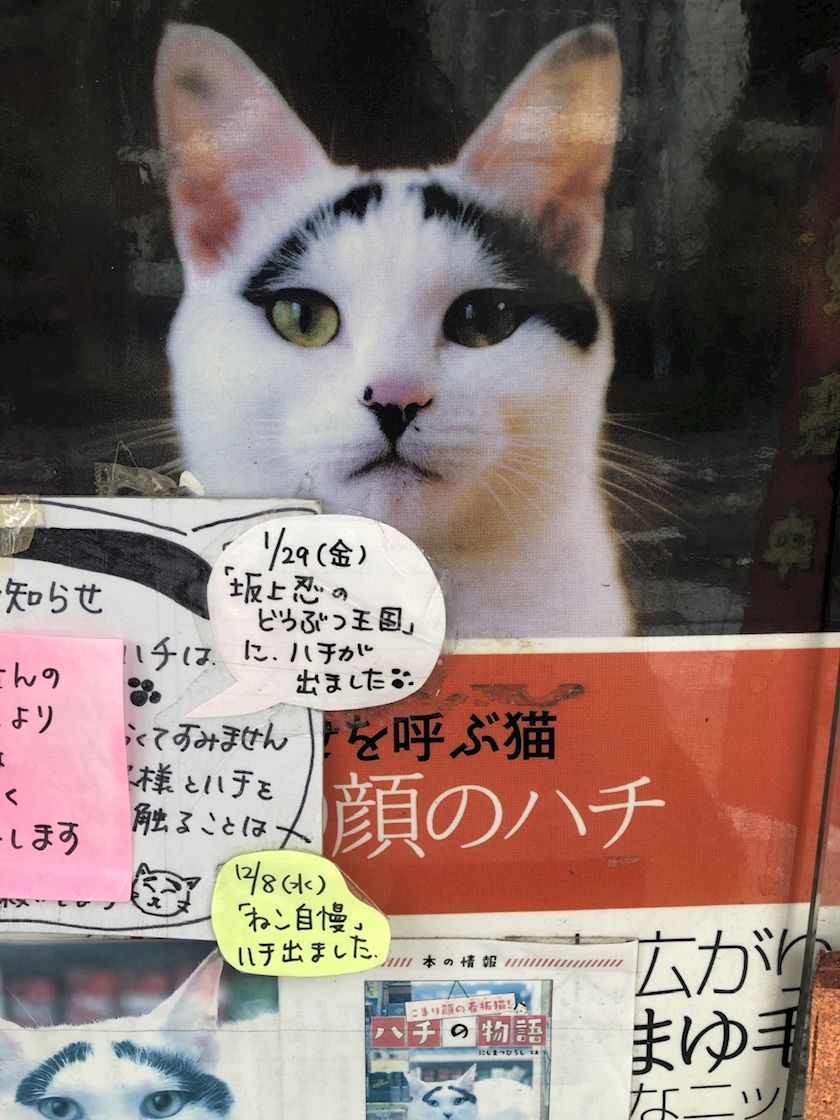 知らせ
ハチは
くてすみません
様とハチを
触ることは
さんの
より
く
します
1/29(金)
「坂上忍の
どうぶつ王国」
に、ハチが
出ました
を呼ぶ猫
顔のハチ
12/8(水)
「ねこ自慢」
ハチ出ました.
本の情報
こまり顔の看板猫!
ハチの物語
にしまつひろし
広がり
まゆ毛
なニッ